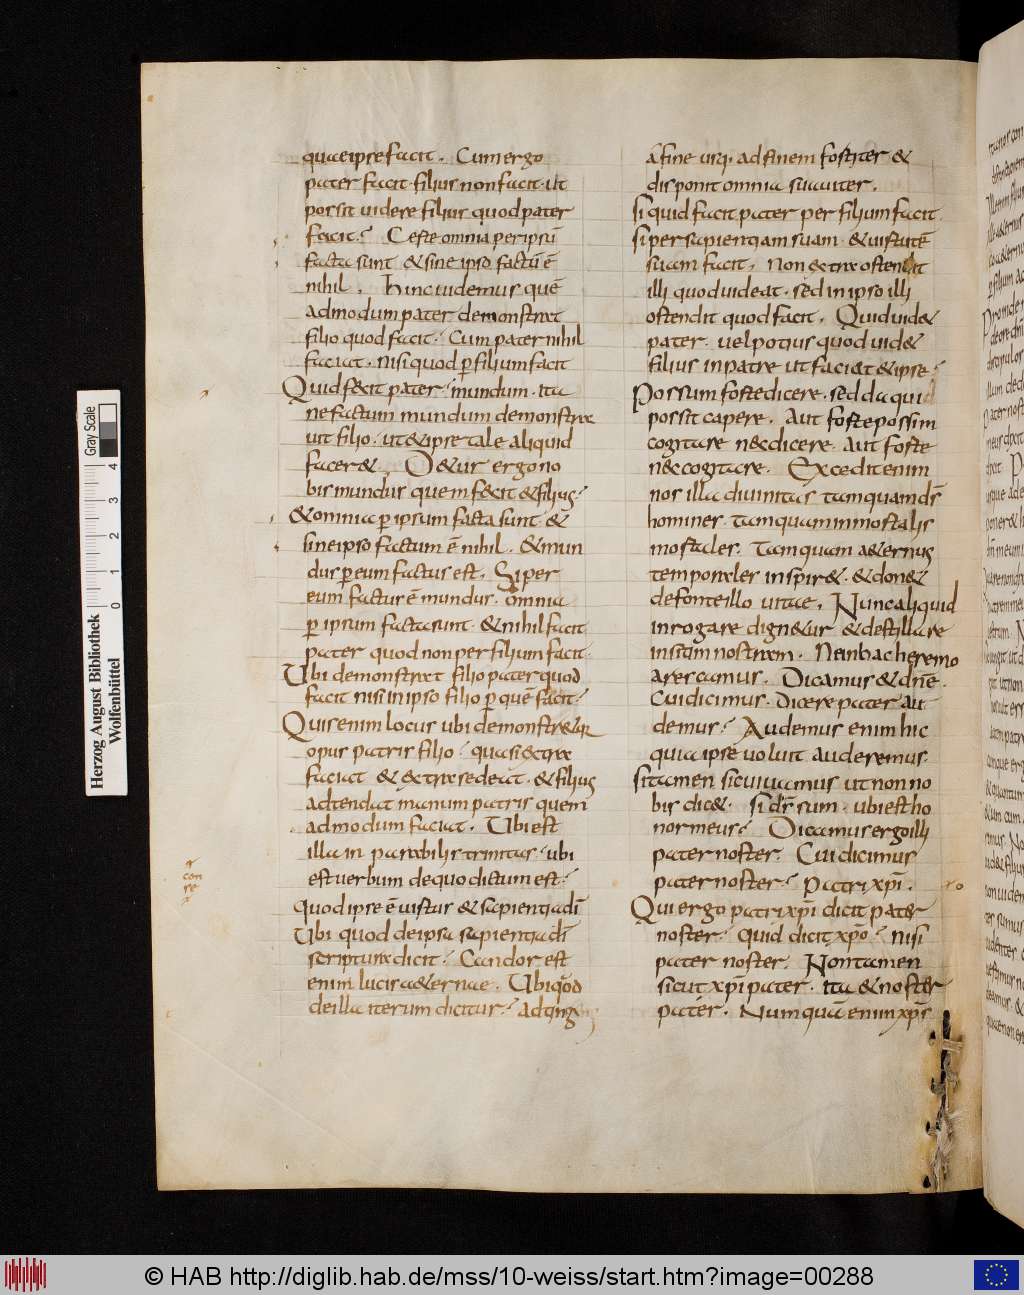 quae ipse facit. Cum ergo
pater facit filius non facit. ut
possit uidere filius quod pater
facit? Certe omnia per ipsū
facta sunt & sine ipso factū ē
nihil. Hinc uidemus quē
admodum pater demonstrat
filio quod facit. Cum pater nihil
faciat. nisi quod p filium facit
Quid fecit pater? mundum. ita
ne factum mundum demonstra
uit filio. ut & ipse tale aliquid
facer&. D&ur ergo no
bis mundus quem fecit & filius?
& omnia p ipsum facta sunt. &
sine ipso factum ē nihil. & mun
dus p eum factus est. Si per
eum factus ē mundus. omnia
p ipsum facta sunt. & nihil facit
pater quod non per filium facit.
Ubi demonstrat filio pater quod
facit nisi in ipso filio p quē facit?
Quis enim locus ubi demonstr&ur
opus patris filio? quasi extra
faciat & extra sedeat. & filius
adtendat manum patris quem
admodum faciat. Ubi est
illa inparabilis trinitas? ubi
est uerbum de quo dictum est?
quod ipse ē uirtus & sapientia dī
Ubi quod de ipsa sapientia dī
scriptura dicit? Candor est
enim lucis a&ernae. Ubi quod
de illa iterum dicitur? adtingit
con
re
a fine usq. ad finem fortiter &
disponit omnia suauiter.
si quid facit pater per filium facit.
si per sapientiam suam. & uirtutē
suam facit. non extra ostendit
illi quod uideat. sed in ipso illi
ostendit quod facit. Quid uid&
pater. uel potius quod uid&
filius in patre ut faciat & ipse?
Possum forte dicere. sed da qui
possit capere. Aut forte possim
cogitare nec dicere. aut forte
nec cogitare. Excedit enim
nos illa diuinitas tamquam ds̄
homines. tamquam inmortalis
mortales. Tamquam a&ernus
temporales inspir&. & don&
de fonte illo uitae. Nunc aliquid
inrogare dign&ur & destillare
in sitim nostram. Ne in hac heremo
arescamus. Dicamus & dnē.
Cui dicimus. dicere pater au
demus? Audemus enim hic
quia ipse uoluit auderemus.
si tamen sic uiuamus ut non no
bis dic&. si ds̄ sum. ubi est ho
nor meus? Dicamus ergo illi
pater noster. Cui dicimus
pater noster? Patri xp̄i.
Qui ergo patri xp̄i dicit pater
noster? Quid dicit xp̄o? Nisi
pater noster. Non tamen
sicut xp̄i pater. ita & noster
pater. Numquā enim xp̄s
Herzog August Bibliothek
Wolfenbüttel
Gray Scale
0 1 2 3 4
© HAB http://diglib.hab.de/mss/10-weiss/start.htm?image=00288